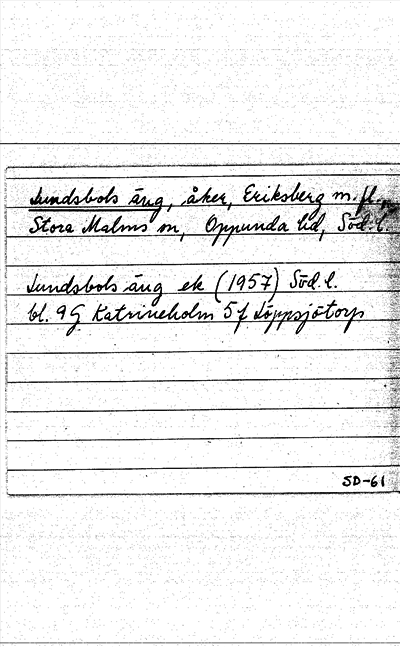 Lundsbols äng, åker, Eriksberg m.fl.,
Stora Malms sn, Oppunda hd, Söd. l.
Lundsbols äng ek (1957) Söd. l.
bl. 9G Katrineholm 5f Löppsjötorp
SD-61